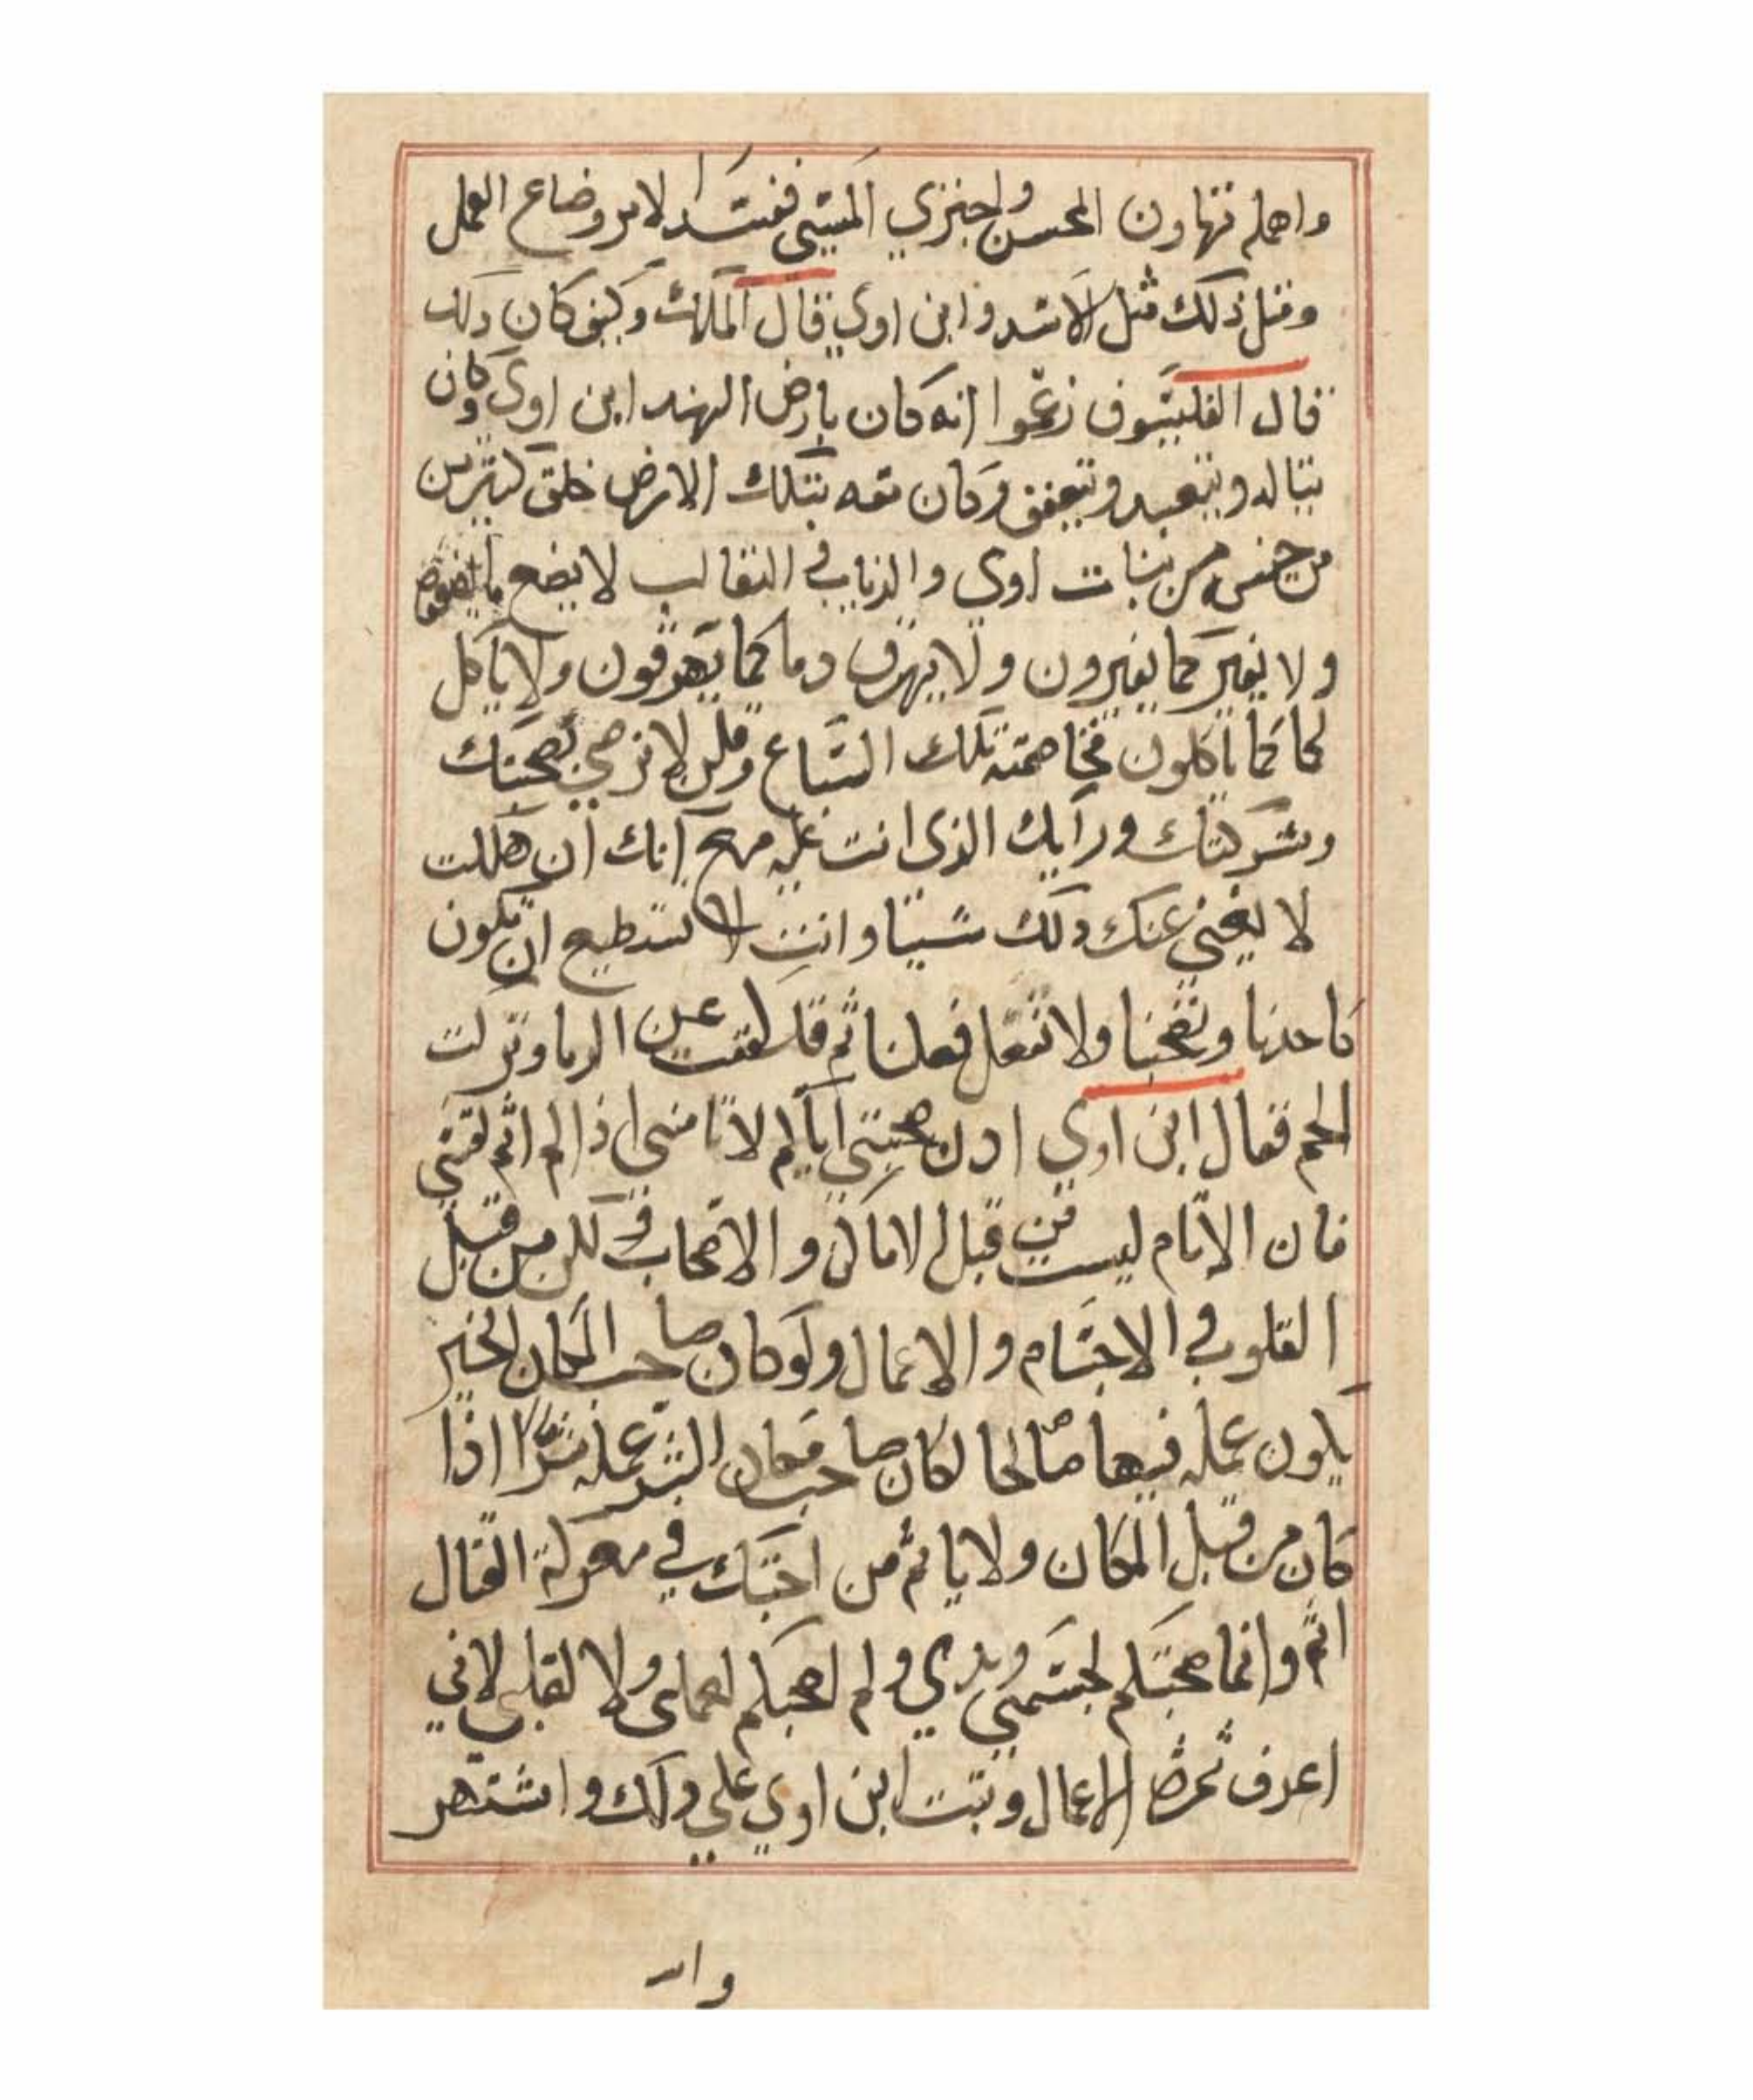 واهلم تهاون المحسن واجتزي المسي ففسد الامر وضاع العمل
ومثل ذلك مثل الاسد وابن اوي قال الملك وكيف كان ذلك
قال الفليسوف زعموا انه كان بارض الهند ابن اوي وكان
يتاله ويتعبد ويتعفف وكان معه بتلك الارض خلق كثير من
من جنس من بنات اوي والذياب في الثعالب لا يضع ما يضعون
ولا يغير كما يغيرون ولا يهرق دما كما يهرقون ولا ياكل
لحما كما ياكلون فخاصمته تلك السباع وقلن لا نرضي بصحبتك
وشركتك ورايك الذي انت عليه مع انك ان هلكت
لا يغني عنك ذلك شيا وانت لا تستطيع ان تكون
كاحدنا وتصحبنا ولا تفعل فعلنا ثم قد كففت عن الدما وتركت
الحم فقال ابن اوي ان صحبتي اياكم لا تامني اذا لم اثم نفسي
فان الاثام ليست من قبل الاماكن والاصحاب ولكن من قبل
القلوب في الاجسام والاعمال ولو كان صاحب المكان الخير
يكون عمله فيها صالحا لكان صاحب مكان الشر عمله شرا اذا
كان من قبل المكان ولا ياثم من احبك في معركة القتال
اثم وانما صحبتكم لجسمي ويدي ولم اصحبكم لعملي ولا لقلبي لاني
اعرف ثمرة الاعمال وثبت ابن اوي علي ذلك واشتهر